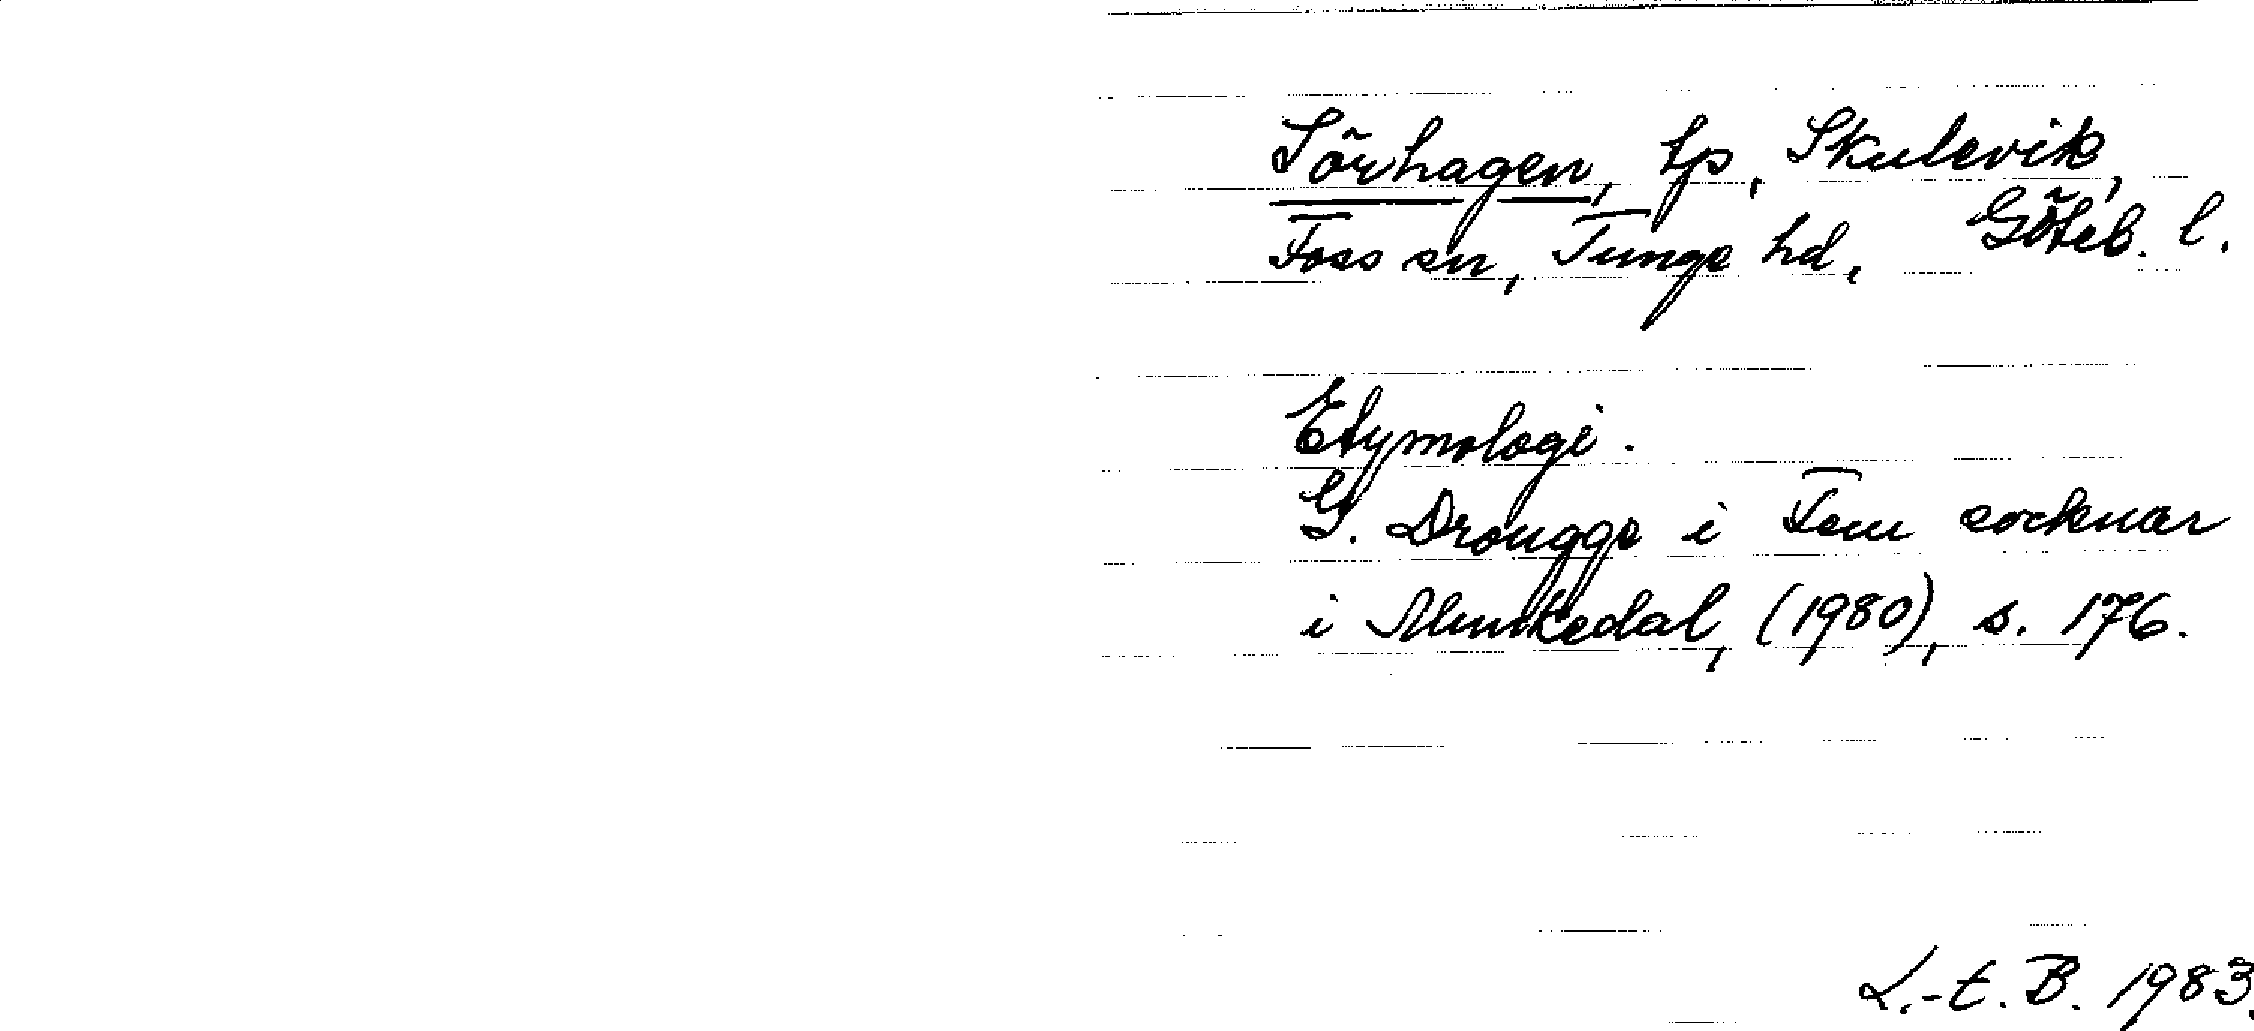 Sörhagen, tp, Skulevik,
Foss sn, Tunge hd, Göteb. l.
Etymologi.
G. Drougge i Fem socknar
i Munkedal, (1980), s. 176.
L.-E. B. 1983.